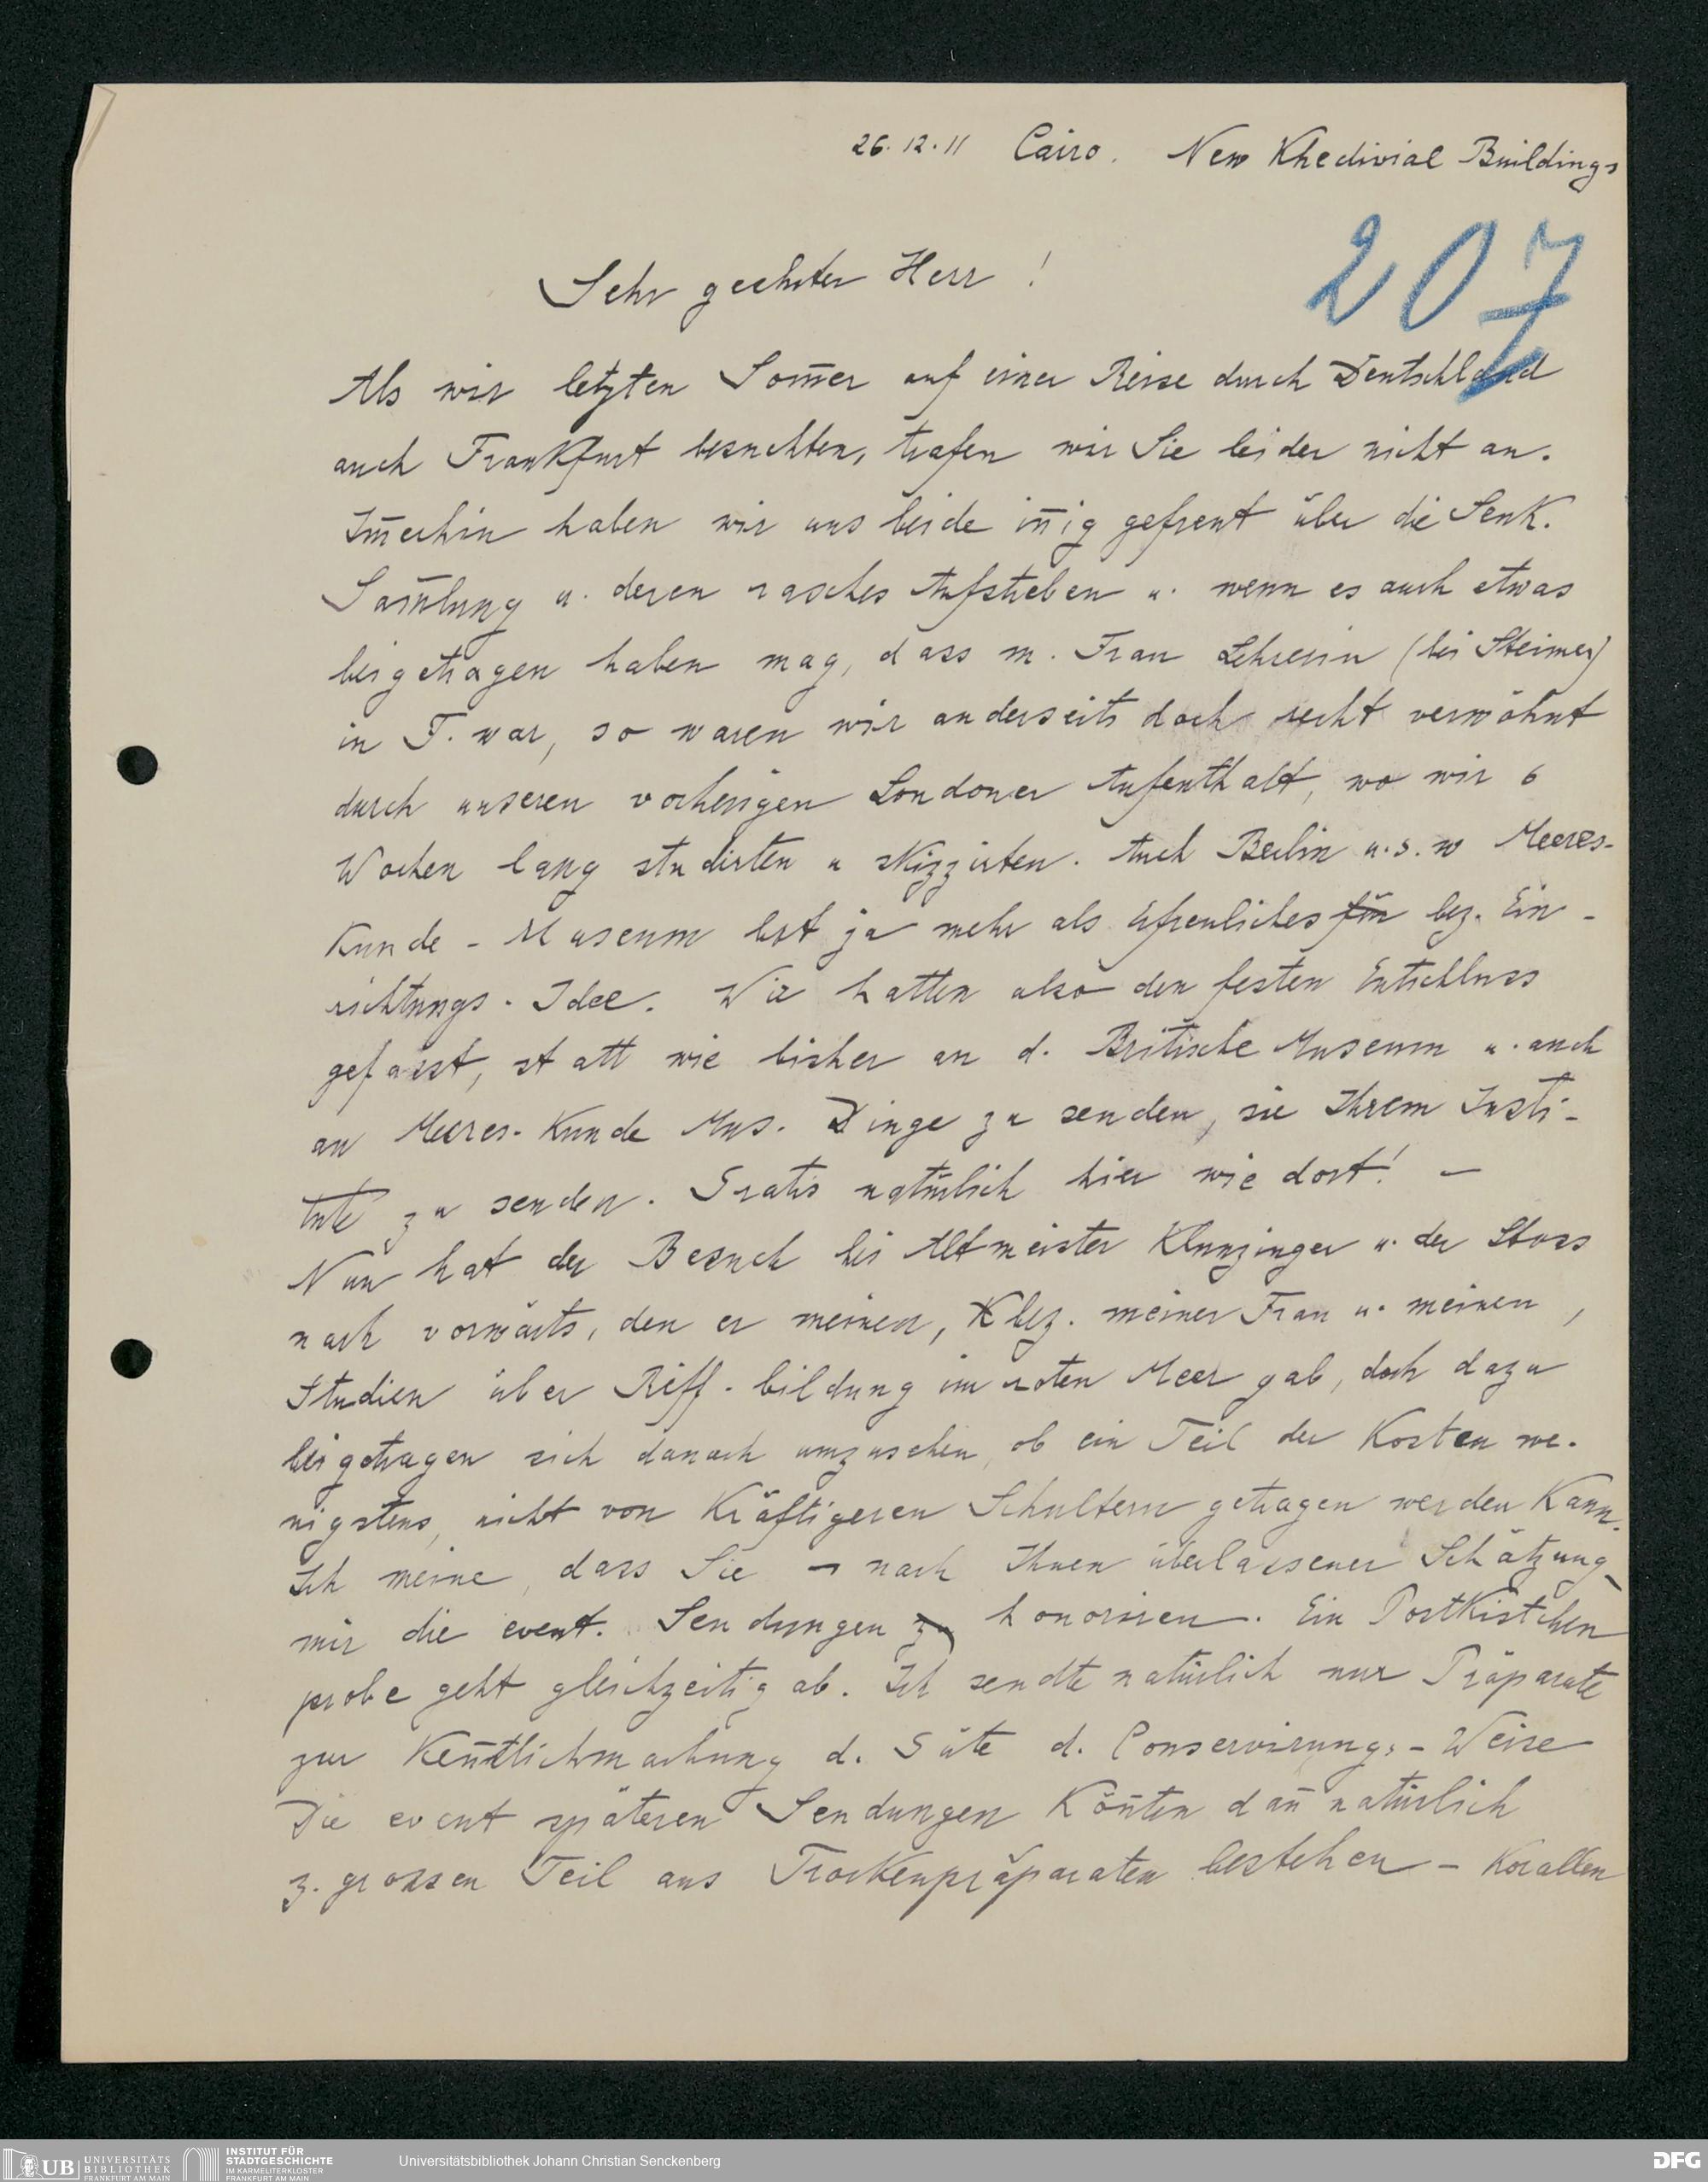 26.12.11 Cairo. New Khedivial Buildings
207
Sehr geehrter Herr!
Als wir letzten Som̄er auf einer Reise durch Deutschland
auch Frankfurt besuchten, trafen wir Sie leider nicht an.
Im̄erhin haben wir uns beide in̄ig gefreut über die Senk.
Sam̄lung u. deren rasches Aufstreben u. wenn es auch etwas
beigetragen haben mag, dass m. Frau Lehrerin (bei Steimer)
in F. war, so waren wir anderseits doch recht verwöhnt
durch unseren vorherigen Londoner Aufenthalt, wo wir 6
Wochen lang studirten u skizzirten. Auch Berlin u.s.w Meeres-
Kunde-Museum bot ja mehr als Erfreuliches für bez. Ein-
richtungs-Idee. Wir hatten also den festen Entschluss
gefasst, statt wie bisher an d. Britische Museum u. auch
an Meeres-Kunde Mus. Dinge zu senden, sie Ihrem Insti-
tute zu senden. Gratis natürlich hier wie dort! –
Nun hat der Besuch bei Altmeister Klunzinger u. der Stoss
nach vorwärts, den er meinen, bez. meiner Frau u. meinen,
Studien über Riff-bildung im roten Meer gab, doch dazu
beigetragen sich danach umzusehen, ob ein Teil der Kosten we-
nigstens, nicht von Kräftigeren Schultern getragen werden Kann.
Ich meine, dass Sie – nach Ihnen überlassener Schätzung –
mir die event. Sendungen zu honoriren. Ein Postkistchen
probe geht gleichzeitig ab. Ich sendte natürlich nur Präparate
zur Ken̄tlichmachung d. Güte d. Conservirungs-Weise
Die event späteren Sendungen Kön̄ten dan̄ natürlich
z. grossen Teil aus Trockenpräparaten bestehen – Korallen
UB UNIVERSITÄTS BIBLIOTHEK FRANKFURT AM MAIN
INSTITUT FÜR STADTGESCHICHTE IM KARMELITERKLOSTER FRANKFURT AM MAIN
Universitätsbibliothek Johann Christian Senckenberg
DFG